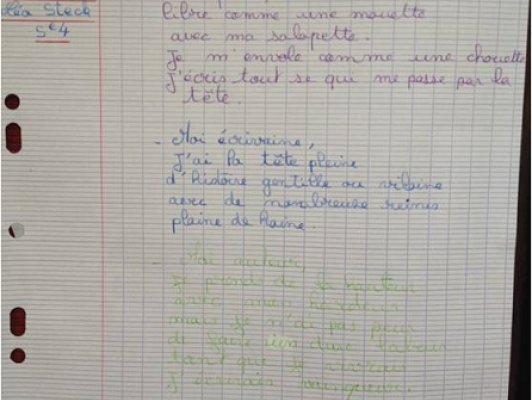 Léa Steck
5e4
Libre comme une mouette
avec ma salopette.
Je m'envole comme une chouette
J'écris tout se qui me passe par la
tête.
- Moi écrivaine,
J'ai la tête pleine
d'histoire gentille ou vilaine
avec de nombreuse reines
plaine de haine.
- Moi auteur,
Je prends de la hauteur
avec mon
mais je n'ai pas peur
de faire un dure labeur
tant que je
J'écrirais